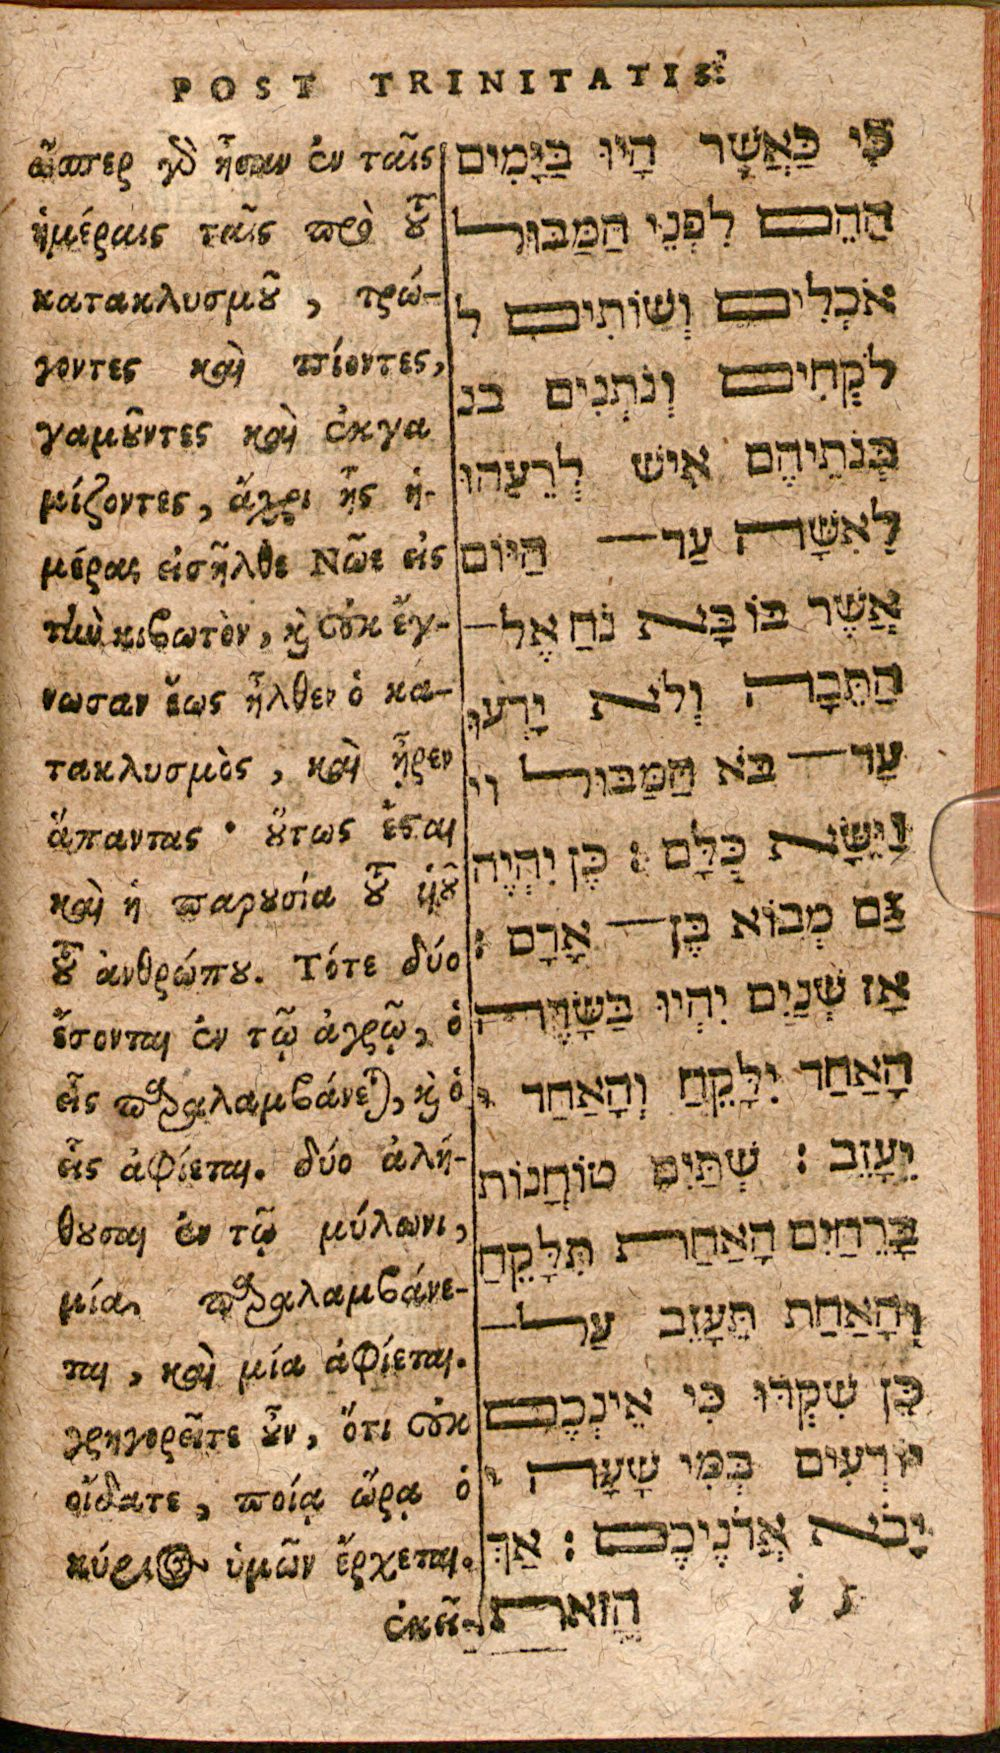 POST TRINITATIS.
ὥσπερ γὰρ ἦσαν ἐν ταῖς
ἡμέραις ταῖς πρὸ τοῦ
κατακλυσμοῦ, τρώ-
γοντες καὶ πίοντες,
γαμοῦντες καὶ ἐκγα
μίζοντες, ἄχρι ἧς ἡ-
μέρας εἰσῆλθε Νῶε εἰς
τὴν κιβωτὸν, καὶ οὐκ ἔγ-
νωσαν ἕως ἦλθεν ὁ κα-
τακλυσμὸς, καὶ ᾖρεν
ἅπαντας · οὕτως ἔσται
καὶ ἡ παρουσία τοῦ ὑιοῦ
τοῦ ἀνθρώπου. Τότε δύο
ἔσονται ἐν τῷ ἀγρῷ, ὁ
εἷς παραλαμβάνεται, καὶ ὁ
εἷς ἀφίεται. δύο ἀλή-
θουσαι ἐν τῷ μύλωνι,
μία παραλαμβάνε-
ται, καὶ μία ἀφίεται.
γρηγορεῖτε οὖν, ὅτι οὐκ
οἴδατε, ποίᾳ ὥρᾳ ὁ
κύριος ὑμῶν ἔρχεται.
ἐκεῖ-
כִּי כַּאֲשֶׁר הָיוּ בַּיָּמִים
הָהֵם לִפְנֵי הַמַּבּוּל
אֹכְלִים וְשׁוֹתִים ל
לֹקְחִים וְנֹתְנִים בנ
בְּנֹתֵיהֶם אִישׁ לְרֵעֵהוּ
לְאִשָּׁה עַד— הַיּוֹם
אֲשֶׁר בּוֹ בָּא נֹחַ אֶל—
הַתֵּבָה וְלֹא יָדְעוּ
עַד— בֹּא הַמַּבּוּל וי
וַיִּשָּׂא כֻּלָּם : כֵּן יִהְיֶה
גַּם מְבוֹא בֶּן— אָדָם :
אָז שְׁנַיִם יִהְיוּ בַּשָּׂדֶה
הָאֶחָד יִלָּקֵחַ וְהָאַחֵד י
יֵעָזֵב : שְׁתַּיִם טוֹחֲנוֹת
בָּרֵחַיִם הָאַחַת תִּלָּקֵחַ
וְהָאַחַת תֵּעָזֵב עַל—
כֵּן שִׁקְדּוּ כִּי אֵינְכֶם
יֹדְעִים בְּמִי שָׁעָה י
יָבֹא אֲדֹנֵיכֶם : אַךְ
הַזֹּאת